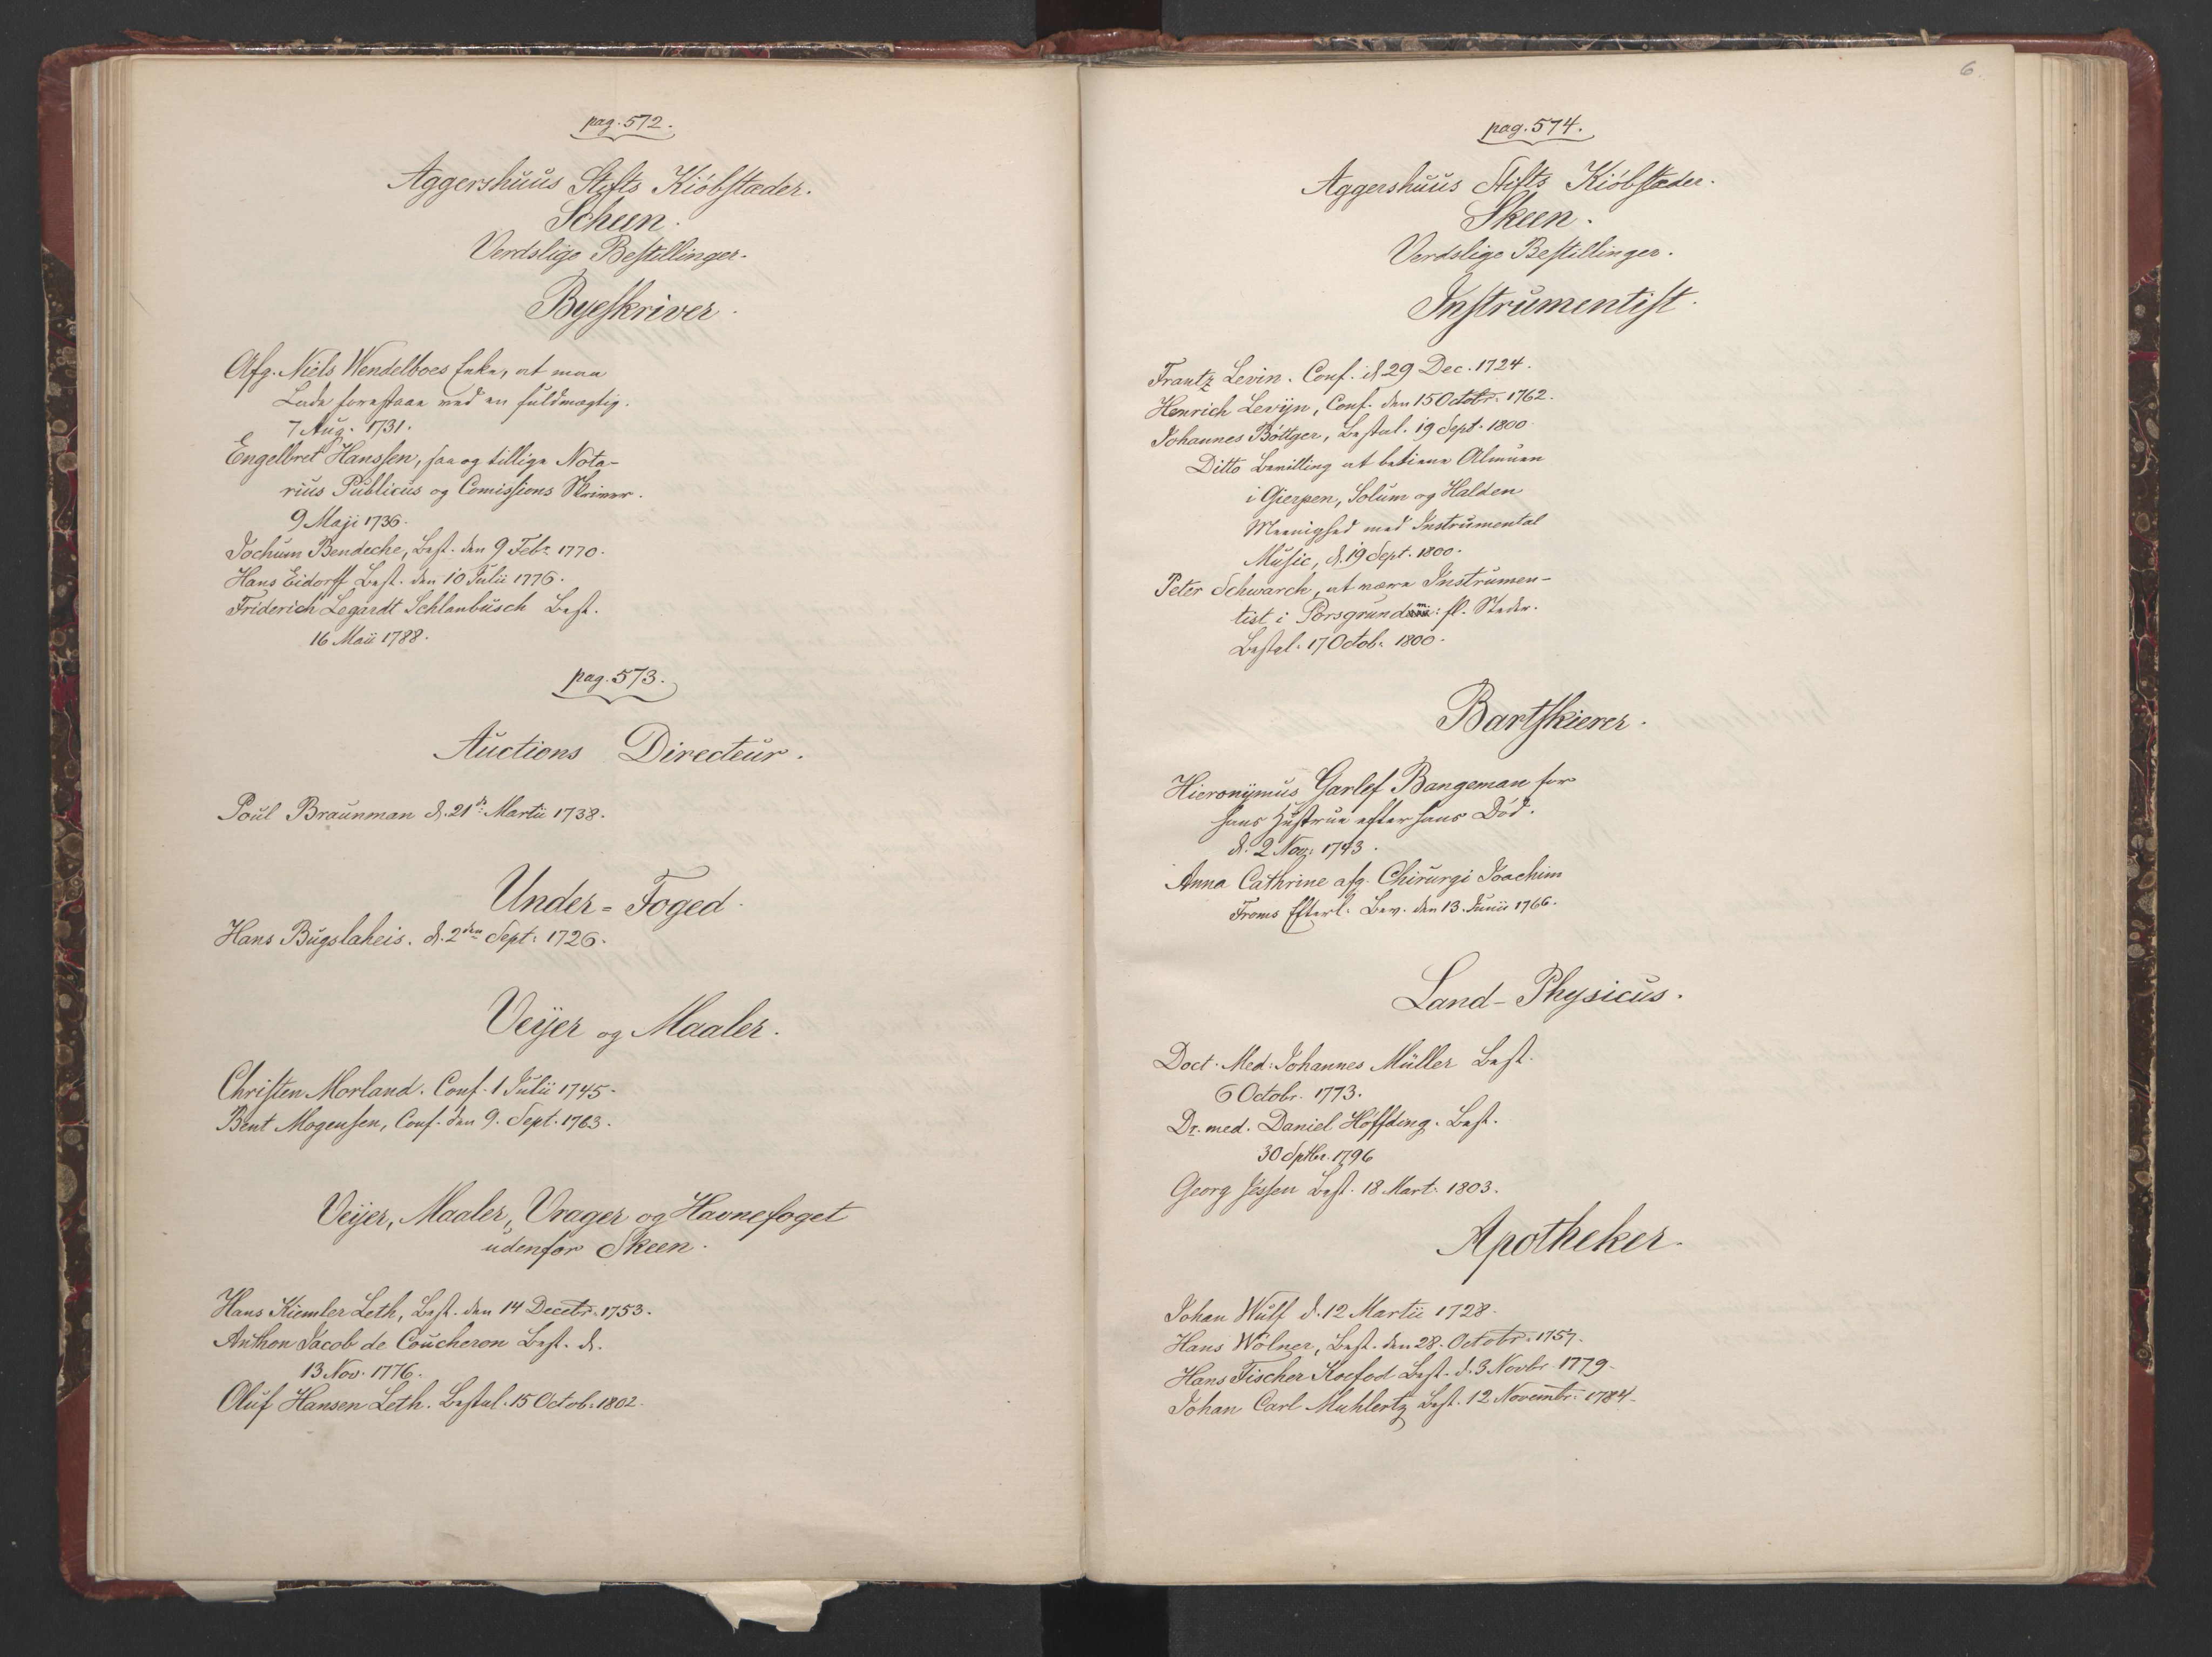 pag. 572.
Aggershuus Stifts Kiöbstæder.
Scheen.
Verdslige Bestillinger.
Byeskriver.
Afg. Niels Wendelboes Enke, at maa
Lade forestaae ved en fuldmægtig.
7 Aug. 1731.
Engelbret Hanssen, saa og tillige Nota-
rius Publicus og Comissions Skriver.
9 Maji 1736.
Jochum Bendeche, Best. den 9 Febr. 1770.
Hans Eidorff Best. den 10 Julii 1776.
Friderich Legardt Schlanbusch Best.
16 Maii 1788.
pag. 573.
Auctions Directeur.
Poul Braunman d. 21de Martii 1738.
Under-Foged.
Hans Bugslaheis. d. 2den Sept: 1726.
Veijer og Maaler.
Christen Morland. Conf. 1 Julii 1745.
Bent Mogensen, Conf. den 9. Sept. 1763.
Veijer, Maaler, Vrager og Havnefoget
udenfor Skeen.
Hans Kiemler Leth, Best. den 14 Decebr. 1753.
Anthon Jacob de Coucheron Best. d.
13 Nov. 1776.
Oluf Hansen Leth. Bestal. 15 Octob. 1802.
6.
pag. 574.
Aggershuus Stifts Kiöbstæder.
Skeen.
Verdslige Bestillinger.
Instrumentist.
Frantz Levin. Conf. d 29 Dec. 1724.
Henrich Levijn, Conf. den 15 Octobr. 1762.
Johannes Böttger, Bestal. 19 Sept. 1800.
Ditto Bevilling at betiene Almuen
i Gierpen, Solum og Halden
Meenighed med Instrumental
Music, d. 19 Sept. 1800.
Peter Schwarch, at være Instrumen-
tist i Porsgrund m: fl. Steder.
Bestal. 17 Octob. 1800.
Bartskierer.
Hieronijmus Garlef Bangeman for
hans Hustrue efter hans Död.
d. 2 Nov: 1743.
Anna Cathrine afg. Chirurgi Joachim
Froms Efterl. Bev. den 13. Junii 1766.
Land-Physicus.
Doct. Med: Johannes Müller Best.
6 Octobr. 1773.
Dr. med. Daniel Höffding. Best.
30 Sptbr. 1796
Georg Jessen Best. 18 Mart. 1803.
Apotheker.
Johan Wulf d. 12 Martii 1728.
Hans Wölner, Best. den 28. Octobr. 1757.
Hans Fischer Koefod Best. d. 3 Novbr. 1779.
Johan Carl Muhlertz Best. 12 Novembr. 1784.